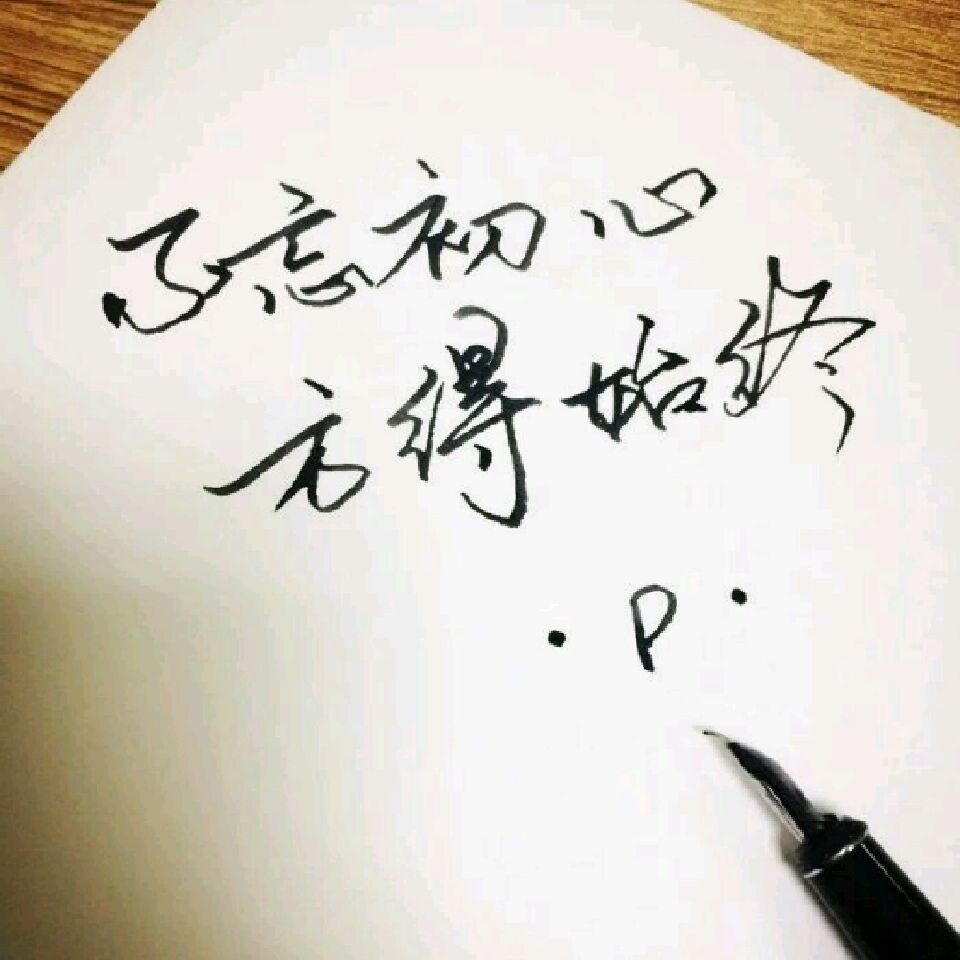 不忘初心
方得始终
·P·